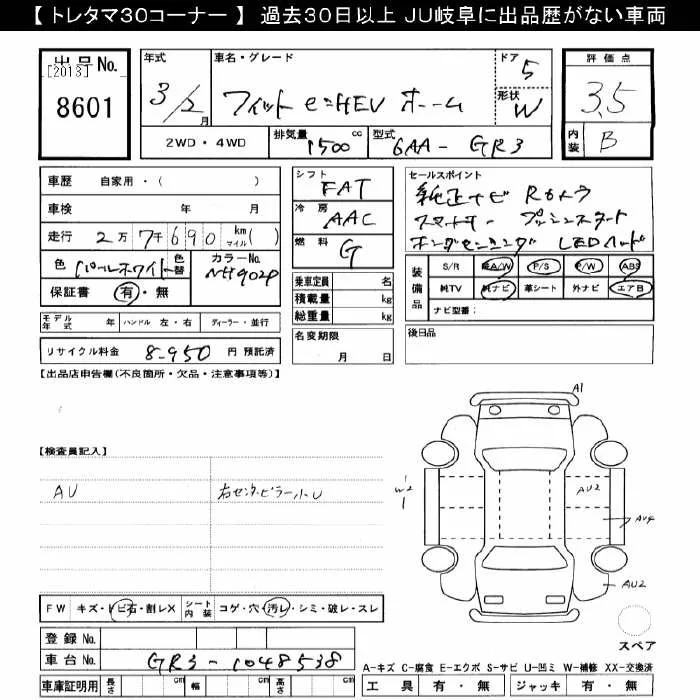 【 トレタマ30コーナー 】 過去30日以上 JU岐阜に出品歴がない車両
出品No.
[2013]
8601
年式
3/2月
車名・グレード
フィット e:HEV ホーム
ドア
5
形状
W
評価点
3.5
内装
B
2WD・4WD
排気量 1500 cc
型式 6AA - GR3
車歴 自家用・( )
車検 年 月
走行 2万7千690 km マイル( )
色 パールホワイト 色替 カラーNo. NH902P
保証書 有・無
シフト FAT
冷房 AAC
燃料 G
乗車定員 名
積載量 kg
総重量 kg
名変期限
月 日
セールスポイント
純正ナビ Rカメラ
スマートキー プッシュスタート
ホンダセンシング LEDヘッド
装備品
S/R 純A/W P/S P/W ABS
純TV 純ナビ 革シート 外ナビ エアB
ナビ型番:
後日品
モデル年式 年 ハンドル 左・右 ディーラー・並行
リサイクル料金 8,950 円 預託済
【出品店申告欄(不良箇所・欠品・注意事項等)】
【検査員記入】
AU
右センターピラー小U
A1
W2
AU2
AU4
AU2
スペア
FW キズ・トビ石・割レX シート内装 コゲ・穴・汚レ・シミ・破レ・スレ
登録 No.
車台 No. GR3-1048538
車庫証明用 長さ cm 幅 cm 高さ cm
A-キズ C-腐食 E-エクボ S-サビ U-凹ミ W-補修 XX-交換済
工具 有・無 ジャッキ 有・無